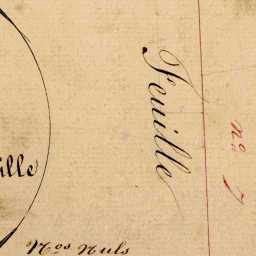 Feuille
nº 7
ille
Nos Nuls